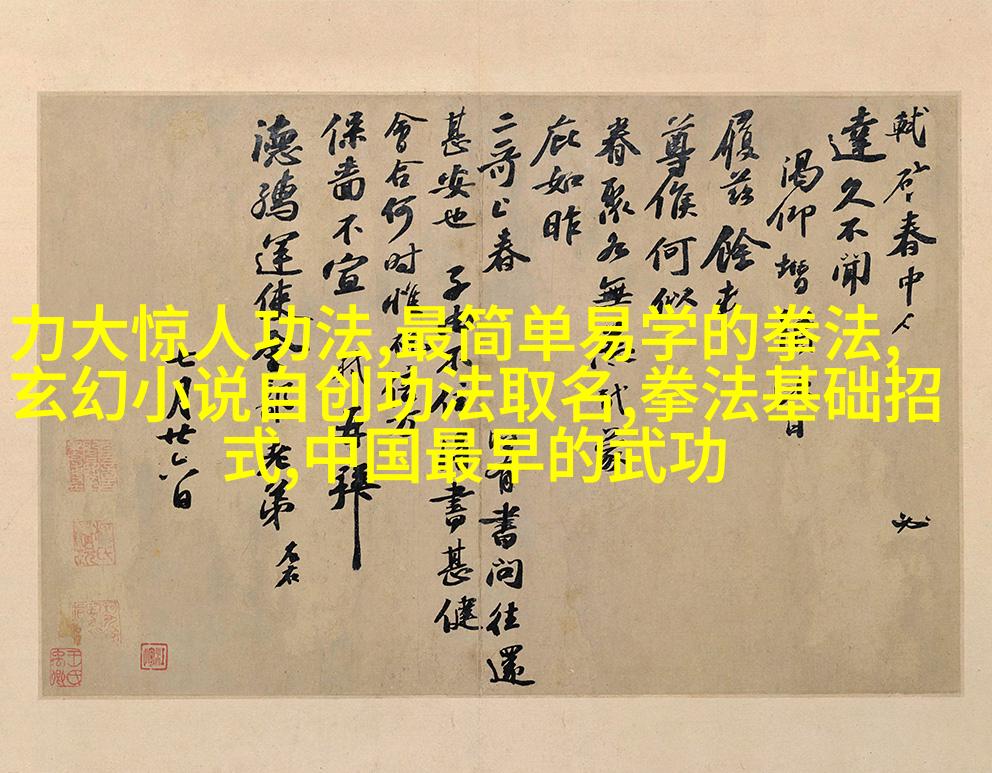 力大惊人功法,最简单易学的拳法,
玄幻小说自创功法取名,拳法基础招
式,中国最早的武功
軾啓春中人必
達久不聞
渴仰增
履茲餘
尊候何似
眷聚各無代蒙
庇如昨
二哥上春書問往還
甚安也子由不書甚健
會合何時惟
保嗇不宣軾再拜
德孺運使老弟
七月廿日